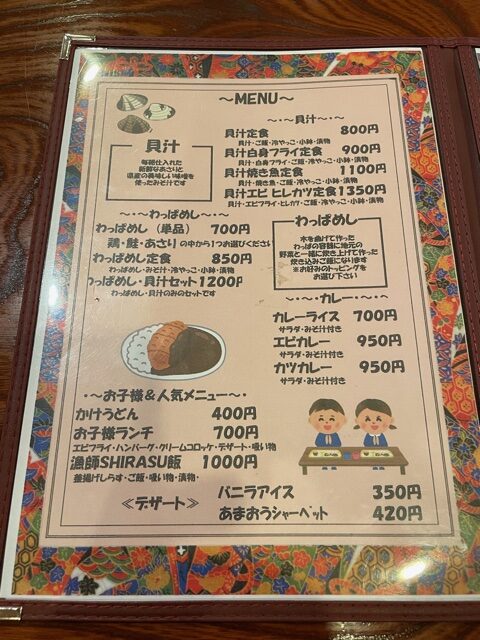 ～MENU～
貝汁
毎朝仕入れた
新鮮なあさりと
県産の美味しい味噌を
使ったみそ汁です
～・～貝汁～・～
貝汁定食 800円
貝汁・ご飯・冷やっこ・小鉢・漬物
貝汁白身フライ定食 900円
貝汁・白身フライ・ご飯・冷やっこ・小鉢・漬物
貝汁焼き魚定食 1100円
貝汁・焼き魚・ご飯・冷やっこ・小鉢・漬物
貝汁エビ ヒレカツ定食1350円
貝汁・エビフライ・ヒレカツ・ご飯・冷やっこ・小鉢・漬物
～・～わっぱめし～・～
わっぱめし（単品） 700円
鶏・鮭・あさり の中から1つお選びください
わっぱめし定食 850円
わっぱめし・みそ汁・冷やっこ・小鉢・漬物
わっぱめし・貝汁セット 1200円
わっぱめし・貝汁のみのセットです
わっぱめし
木を曲げて作った
わっぱの容器に地元の
野菜と一緒に炊き上げて作った
炊き込みご飯になります
※お好みのトッピングを
お選び下さい
～・～カレー～・～
カレーライス 700円
サラダ・みそ汁付き
エビカレー 950円
サラダ・みそ汁付き
カツカレー 950円
サラダ・みそ汁付き
・～お子様＆人気メニュー～・
かけうどん 400円
お子様ランチ 700円
エビフライ・ハンバーグ・クリームコロッケ・デザート・吸い物
漁師SHIRASU飯 1000円
釜揚げしらす・ご飯・吸い物・漬物・
≪デザート≫
バニラアイス 350円
あまおうシャーベット 420円